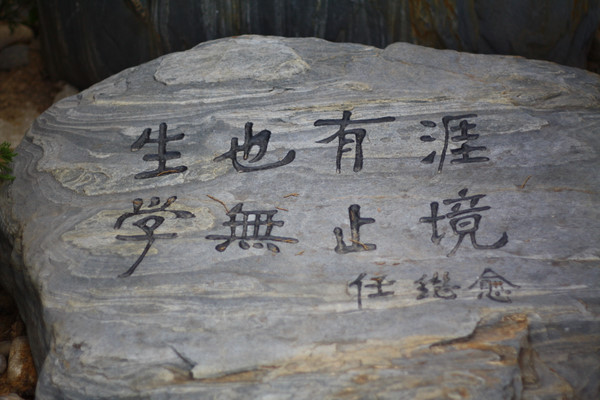 生也有涯
学無止境
任继愈